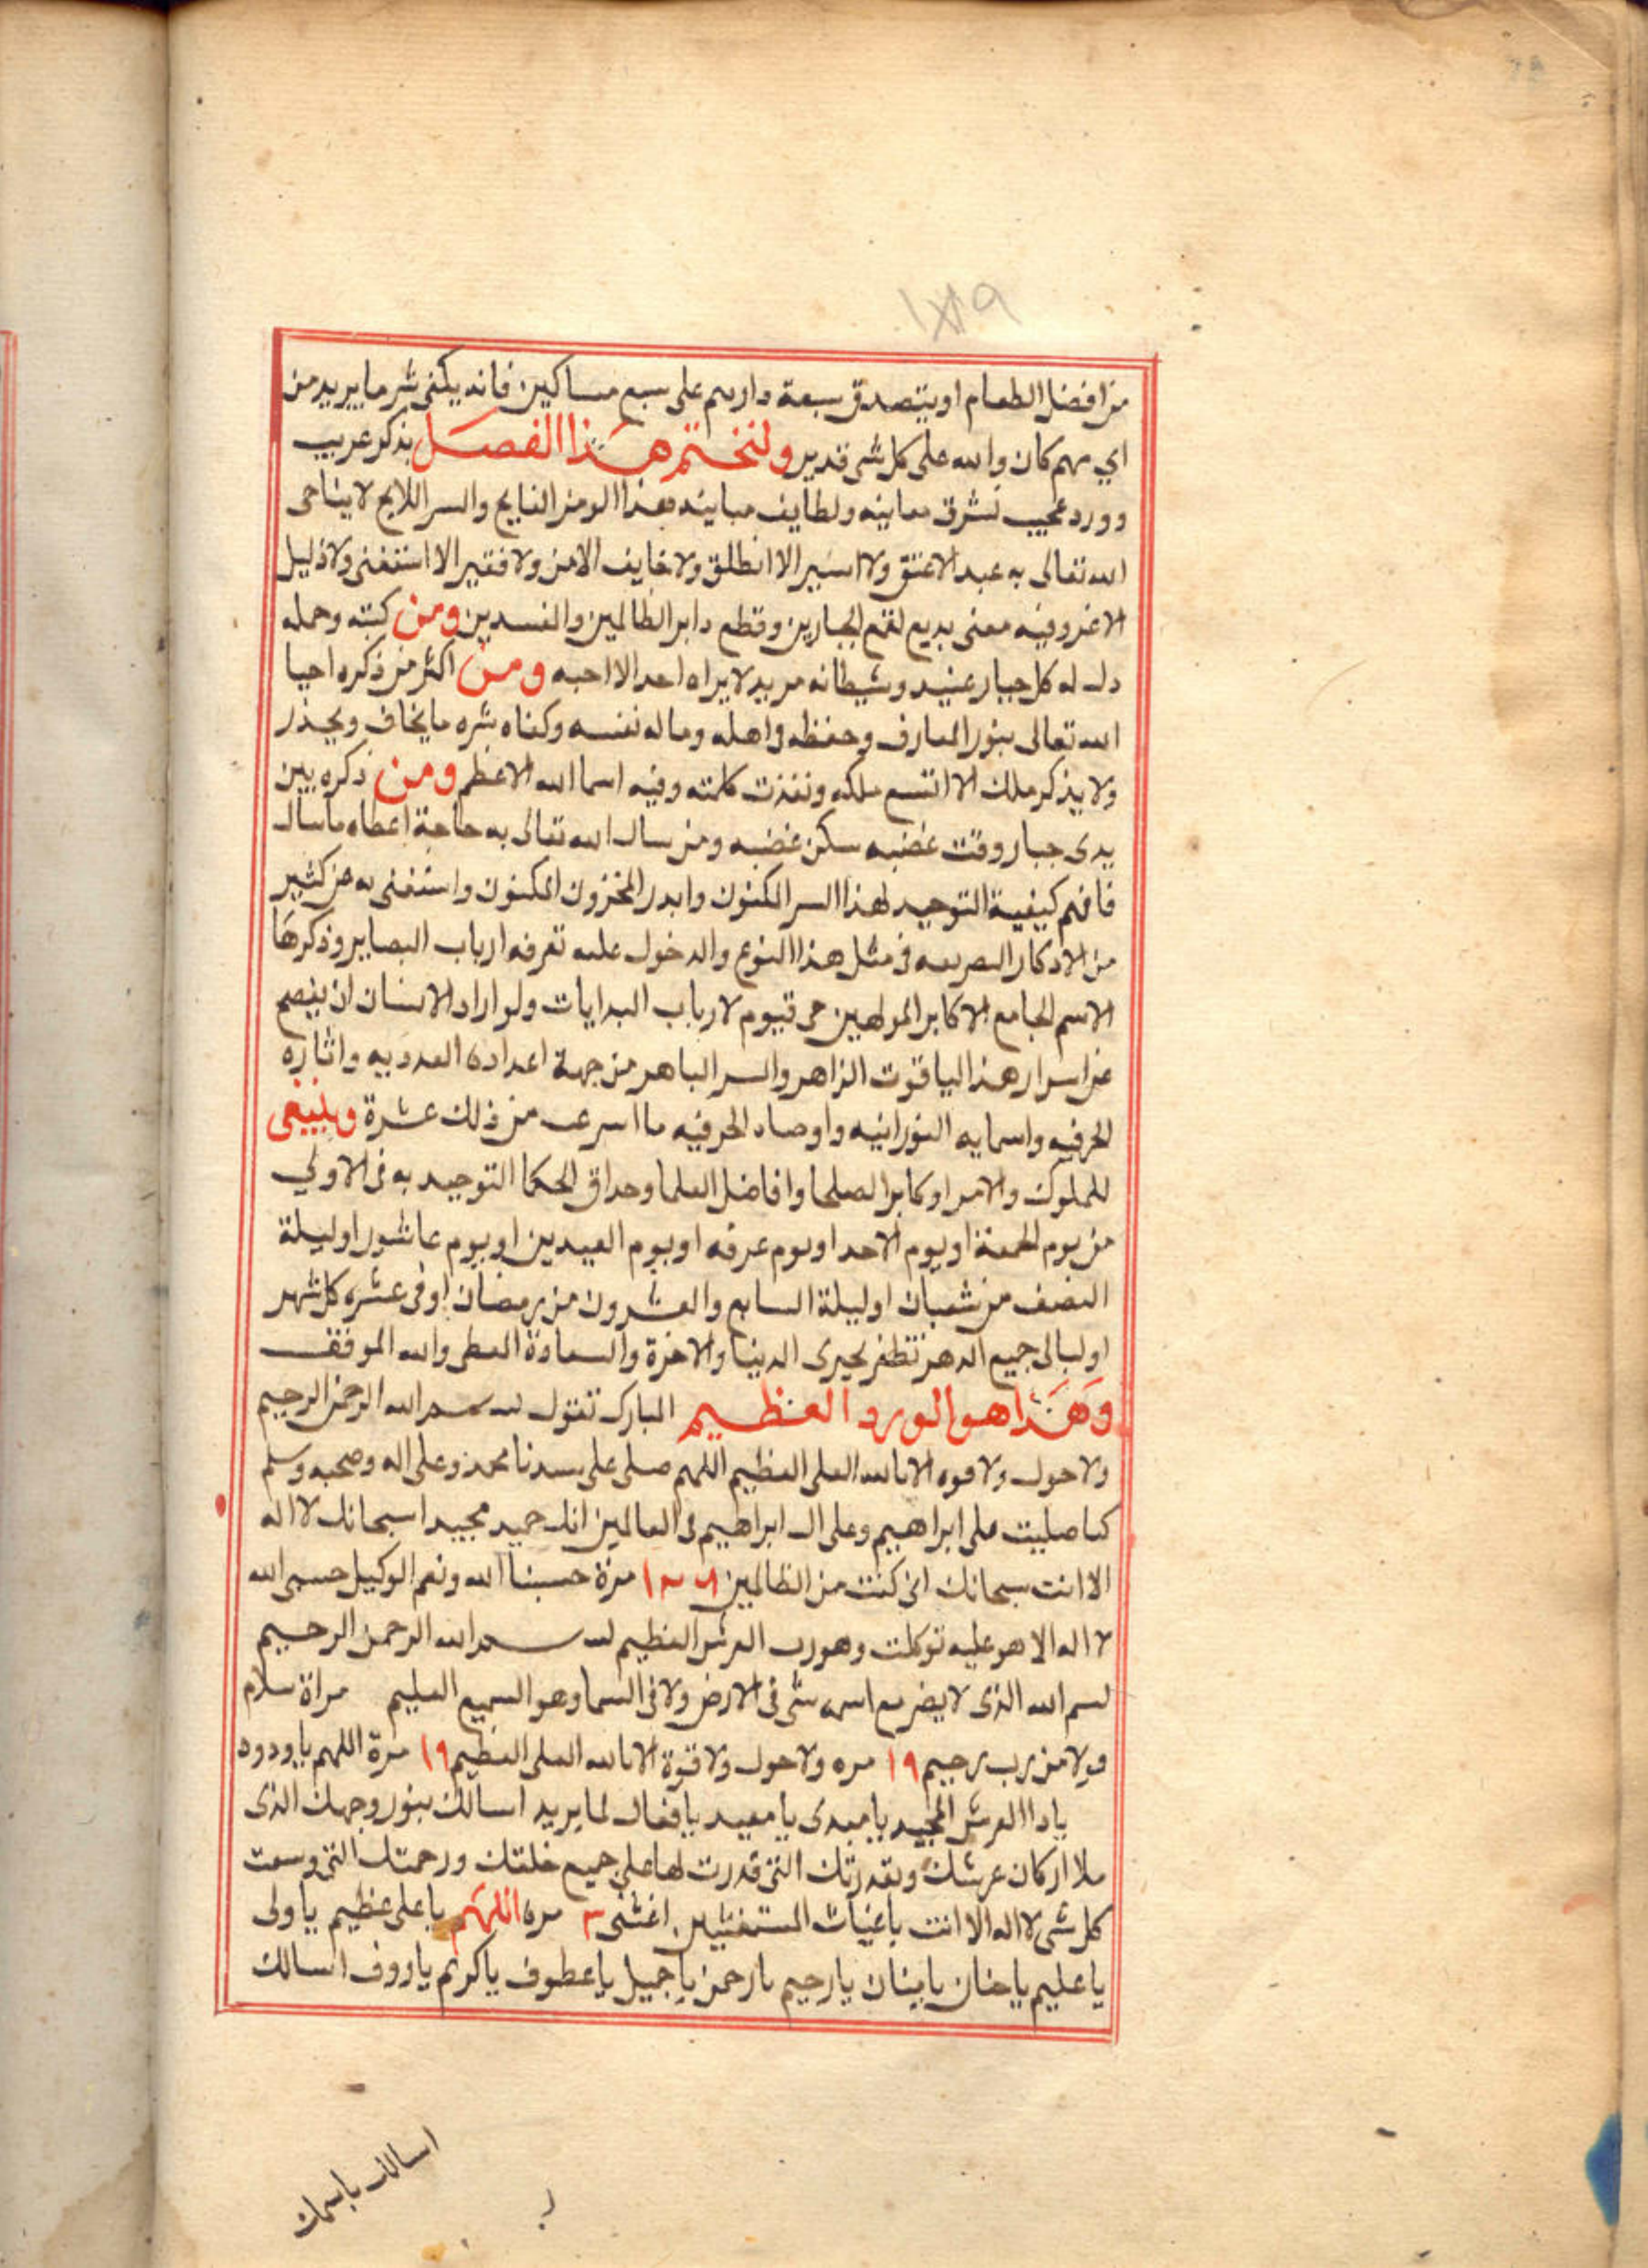 من افضل الطعام او يتصدق بسبعة دارهم على سبع مساكين فانه يكفى شر ما يريد من
اي مهم كان والله على كل شى قدير ولنختم هذا الفصل بذكر غريب
وورد عجيب تشرق معانيه ولطايف مبانيه بهذا الرمز الفايح والسر اللايح لا يناجى
الله تعالى به عبد الا عتق ولا اسير الا انطلق ولا خايف الا امن ولا فقير الا استغنى ولا ذليل
الا عز وفيه معنى بديع لقمع الجبارين وقطع دابر الظالمين والفسدين ومن كتبه وحمله
دل له كل جبار عنيد وشيطانه مريد لا يراه احد الا احبه ومن اكثر من ذكره احيا
الله تعالى بنور المعارف وحفظه واهله وماله نفسه وكفاه شره ما يخاف ويحذر
ولا يذكر ملك الا اتسع ملكه ونفذت كلمته وفيه اسما الله الاعظم ومن ذكره بين
يدى جبار وقت غضبه سكن غضبه ومن سال الله تعالى به حاجة اعطاه ما سال
فافهم كيفية التوحيد لهذا السر المكنون وابدر المخزون المكنون واستغنى به عن كثير
من الادكار فى مثل هذا النوع والدخول عليه تعرفه ارباب البصاير وذكرها
الاسم الجامع الاكابر المولهين حى قيوم لارباب البدايات ولو اراد الانسان ان يفصح
عن اسرار هذا الياقوت الزاهر والسر الباهر من جهة اعداده العدديه واثاره
الحرفيه واسمايه النورانيه واوصاد الحرفيه ما اسرعب من ذلك عشرة وينبغى
للملوك والامرا وكابر الصلحا وافاضل العلما وحداق الحكما التوحيد به فى الاولي
من يوم الجمعة او يوم الاحد او يوم عرفه او يوم العيدين او يوم عاشورا وليلة
النصف من شعبان او ليلة السابع والعشرون من رمضان او فى عشره كل شهر
او ليالى جميع الدهر تظفر بخيرى الدينا والاخرة والسعادة العظمى والله الموفق
وهذا هو الورد العظيم المبارك تقول بسم الله الرحمن الرحيم
ولا حول ولا قوه الا بالله العلى العظيم اللهم صلى على سيدنا محمد وعلى اله وصحبه وسلم
كما صليت على ابراهيم وعلى ال ابراهيم فى العالمين انك حميد مجيد اسبحانك لا اله
الا انت سبحانك انى كنت من الظالمين مرة حسبنا الله ونعم الوكيل حسبى الله
لا اله الا هو عليه توكلت وهو رب العرش العظيم بسم الله الرحمن الرحيم
بسم الله الذى لا يضر مع اسمه شى فى الارض ولا فى السما وهو السميع العليم مراة سلام
قولا من رب رحيم ١٩ مره ولا حول ولا قوة الا بالله العلى العظيم ١٩ مرة اللهم يا ودود
يا دا العرش المجيد يا مبدى يا معيد يا فعال لما يريد اسالك بنور وجهك الذى
ملا اركان عرشك وبقدرتك التى قدرت لها على جميع خلقك ورحمتك التى وسعت
كل شى لا اله الا انت يا غياث المستغيثين اغثنى ٣ مره اللهم يا على عظيم يا ولى
يا عليم يا حنان يا مينان يا رحيم يا رحمن يا جميل يا عطوف يا كريم يا روف اسالك
اسالك باسمك